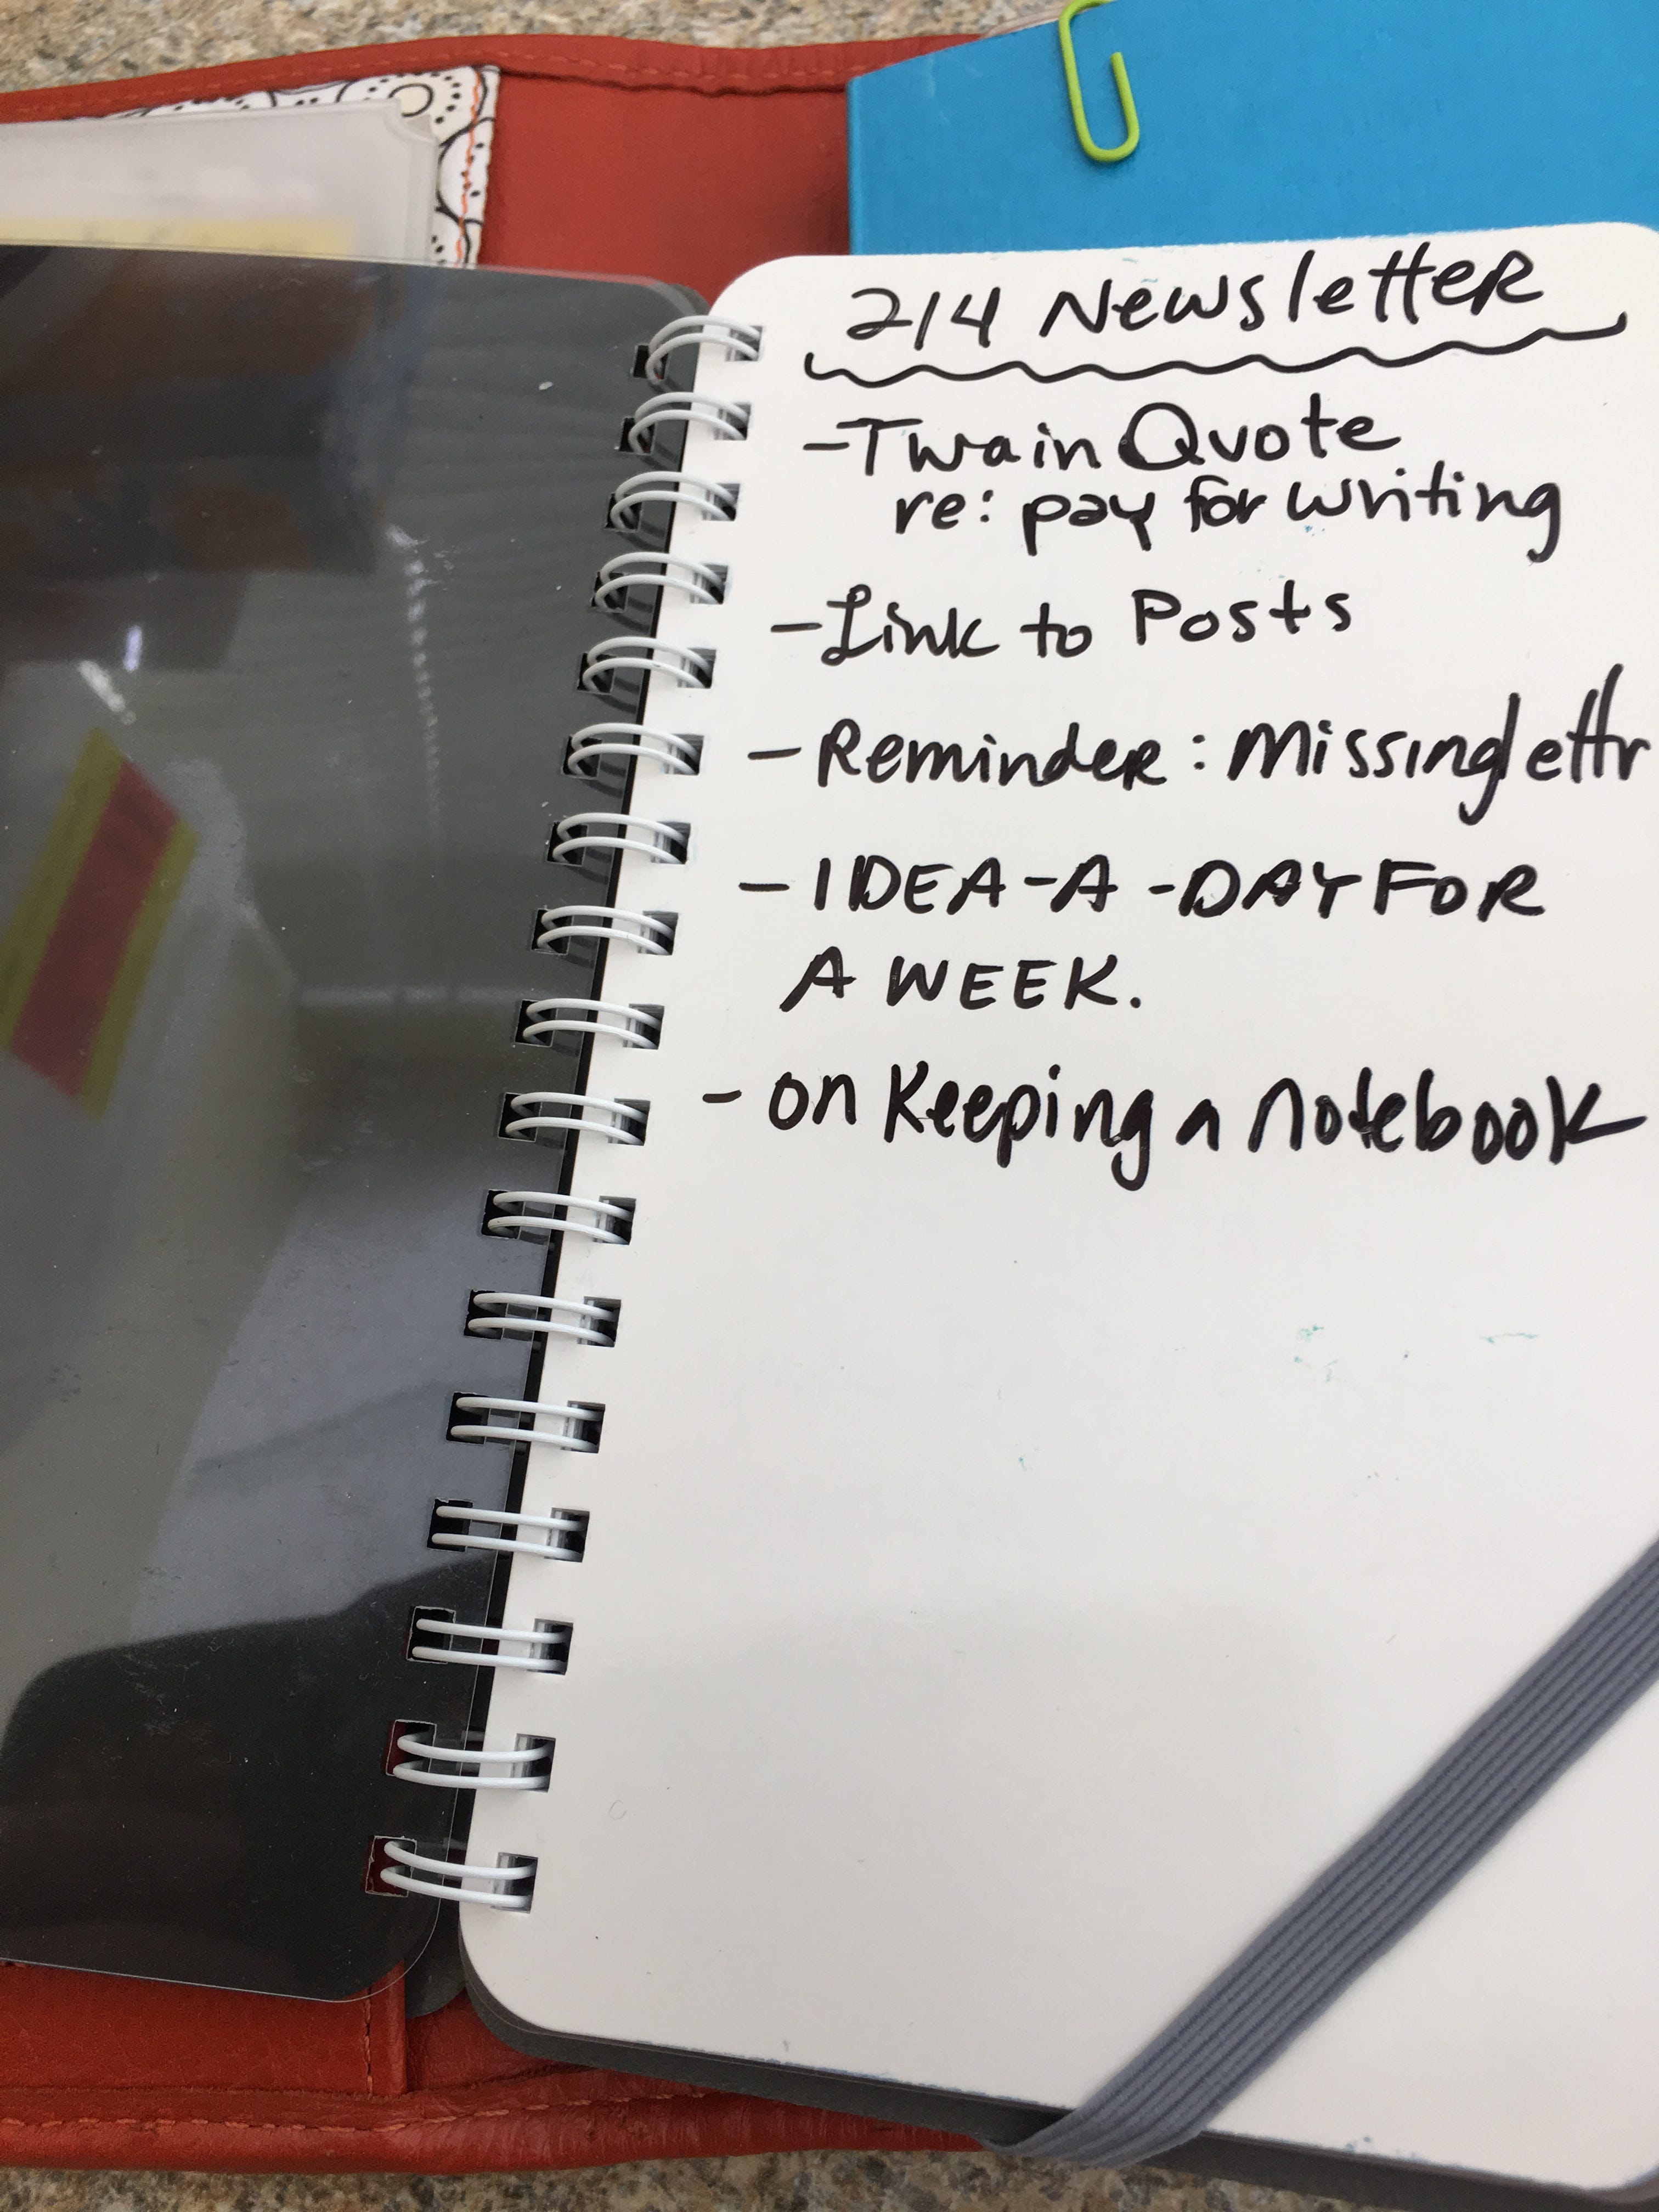 2/4 Newsletter
- Twain Quote
re: pay for writing
- Link to Posts
- Reminder: Missinglettr
- IDEA-A-DAY FOR
A WEEK.
- on Keeping a notebook